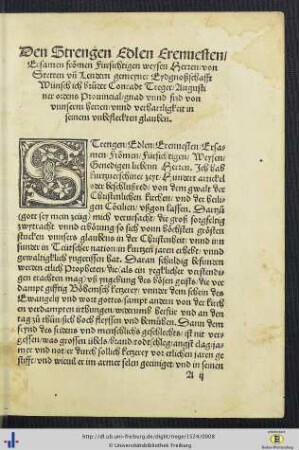 Den Strengen Edlen Erenuesten/
Ersamen frömen Fürsichtigen weysen Herren/ von
Stetten vñ Lendern gemeyner Eydgnoßschafft
Wünsch ich brůder Conradt Treger/ Augusti
ner ordens Prouincial/ gnad vnnd frid von
vnnserm herren/ vnnd verharrligkeit in
seinem vnbefleckten glauben.
STrengen/ Edlen/ Erenuesten/ Ersa
men/ Frömen/ Fürsichtigen/ Weysen/
Genedigen liebenn Herren. Ich hab
kurtzuerschiner zeyt/ Hundert artickel
oder beschlußred/ von dem gwalt der
Christenlichen kirchen/ vnd der heili
gen Cöcilien/ vßgon lassen. Darzů
(gott sey mein zeüg) mich verursacht/ die groß sorgfeltig
zwytracht/ vnnd
stucken vnsers glaubens in der Christenheit/ vnnd inn
sunder in Teütscher nation in kurtzen jaren erhebt/ vnnd
gewaltigklich yngerissen hat. Daran schuldig befunden
werden etlich Propheten/ die/ als ein yegklicher verstendi
gen erachten mag/ vß yngebung des bösen geists/ die ver
dampt gifftig Böhemsch ketzerey/ vnnder dem schein des
Ewangely vnd wort gottes/ sampt andern von der kirch
en verdampten irthungen widerumb herfür vnd an den
tag zů thůn sich hoch fleyssen vnd bemühen. Dann dem
feynd des fridens vnd menschlichs geschlechts/ ist nit ver
gessen/ was grossen übels/ brand/ todtschleg/ angst/ clag/ ja
mer vnd not er durch sollich ketzerey vor etlichen jaren ge
stifft/ vnd wieuil er im armer selen geeiniget/ vnd in seinen
A ij
http://dl.ub.uni-freiburg.de/diglit/treger1524/0008
© Universitätsbibliothek Freiburg